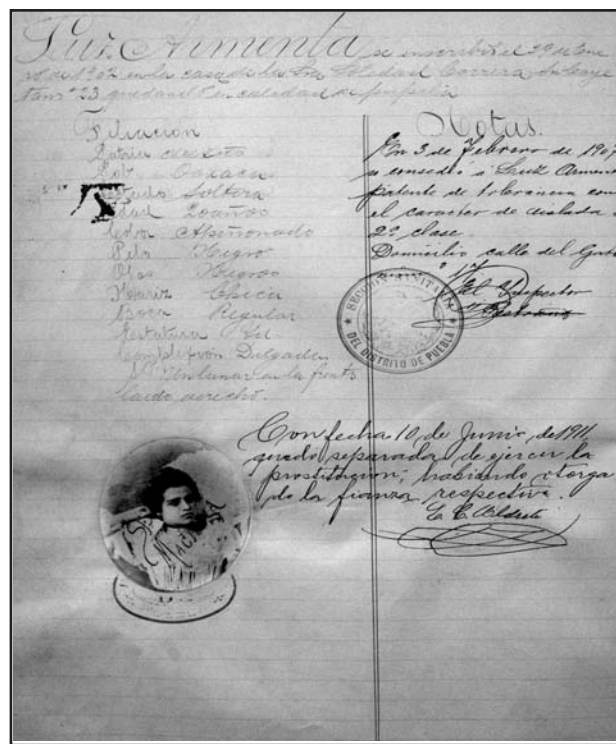 Luz Armenta se inscribió el 29 de Ene
ro de 1902 en la casa de la Sra Soledad Correra
nº 23 quedando en calidad de pupila
Filiacion
Patria
Pob Oaxaca
Estado Soltera
Edad 20 años
Color Apiñonado
Pelo Negro
Ojos Negros
Nariz Chica
Boca Regular
Estatura Id
Complexión Delgada
S. Un lunar en la frente
lado derecho.
Notas.
En 3 de Febrero de 190
se consedió á Luz Armen
patente de tolerancia con
el caracter de aislada
2ª clase.
Domicilio calle del
nº 17
El Inspector
SECCION SANITARIA
DEL DISTRITO DE PUEBLA
Con fecha 10 de Junio de 1911,
quedó separada de ejercer la
prostitucion; habiendo otorga
do la fianza respectiva.
SEP
MACHADA